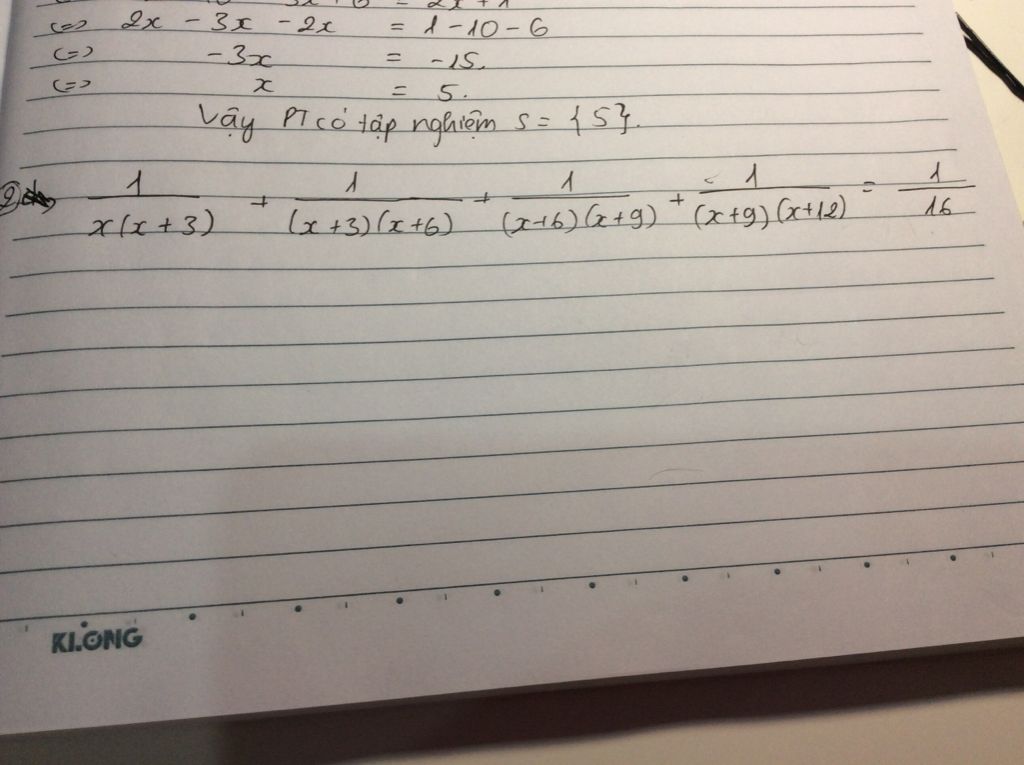 = 2x + 1
<=> 2x - 3x - 2x = 1 - 10 - 6
<=> -3x = -15.
<=> x = 5.
Vậy PT có tập nghiệm S = {5}.
2) 1/x(x+3) + 1/(x+3)(x+6) + 1/(x+6)(x+9) + 1/(x+9)(x+12) = 1/16
KLONG